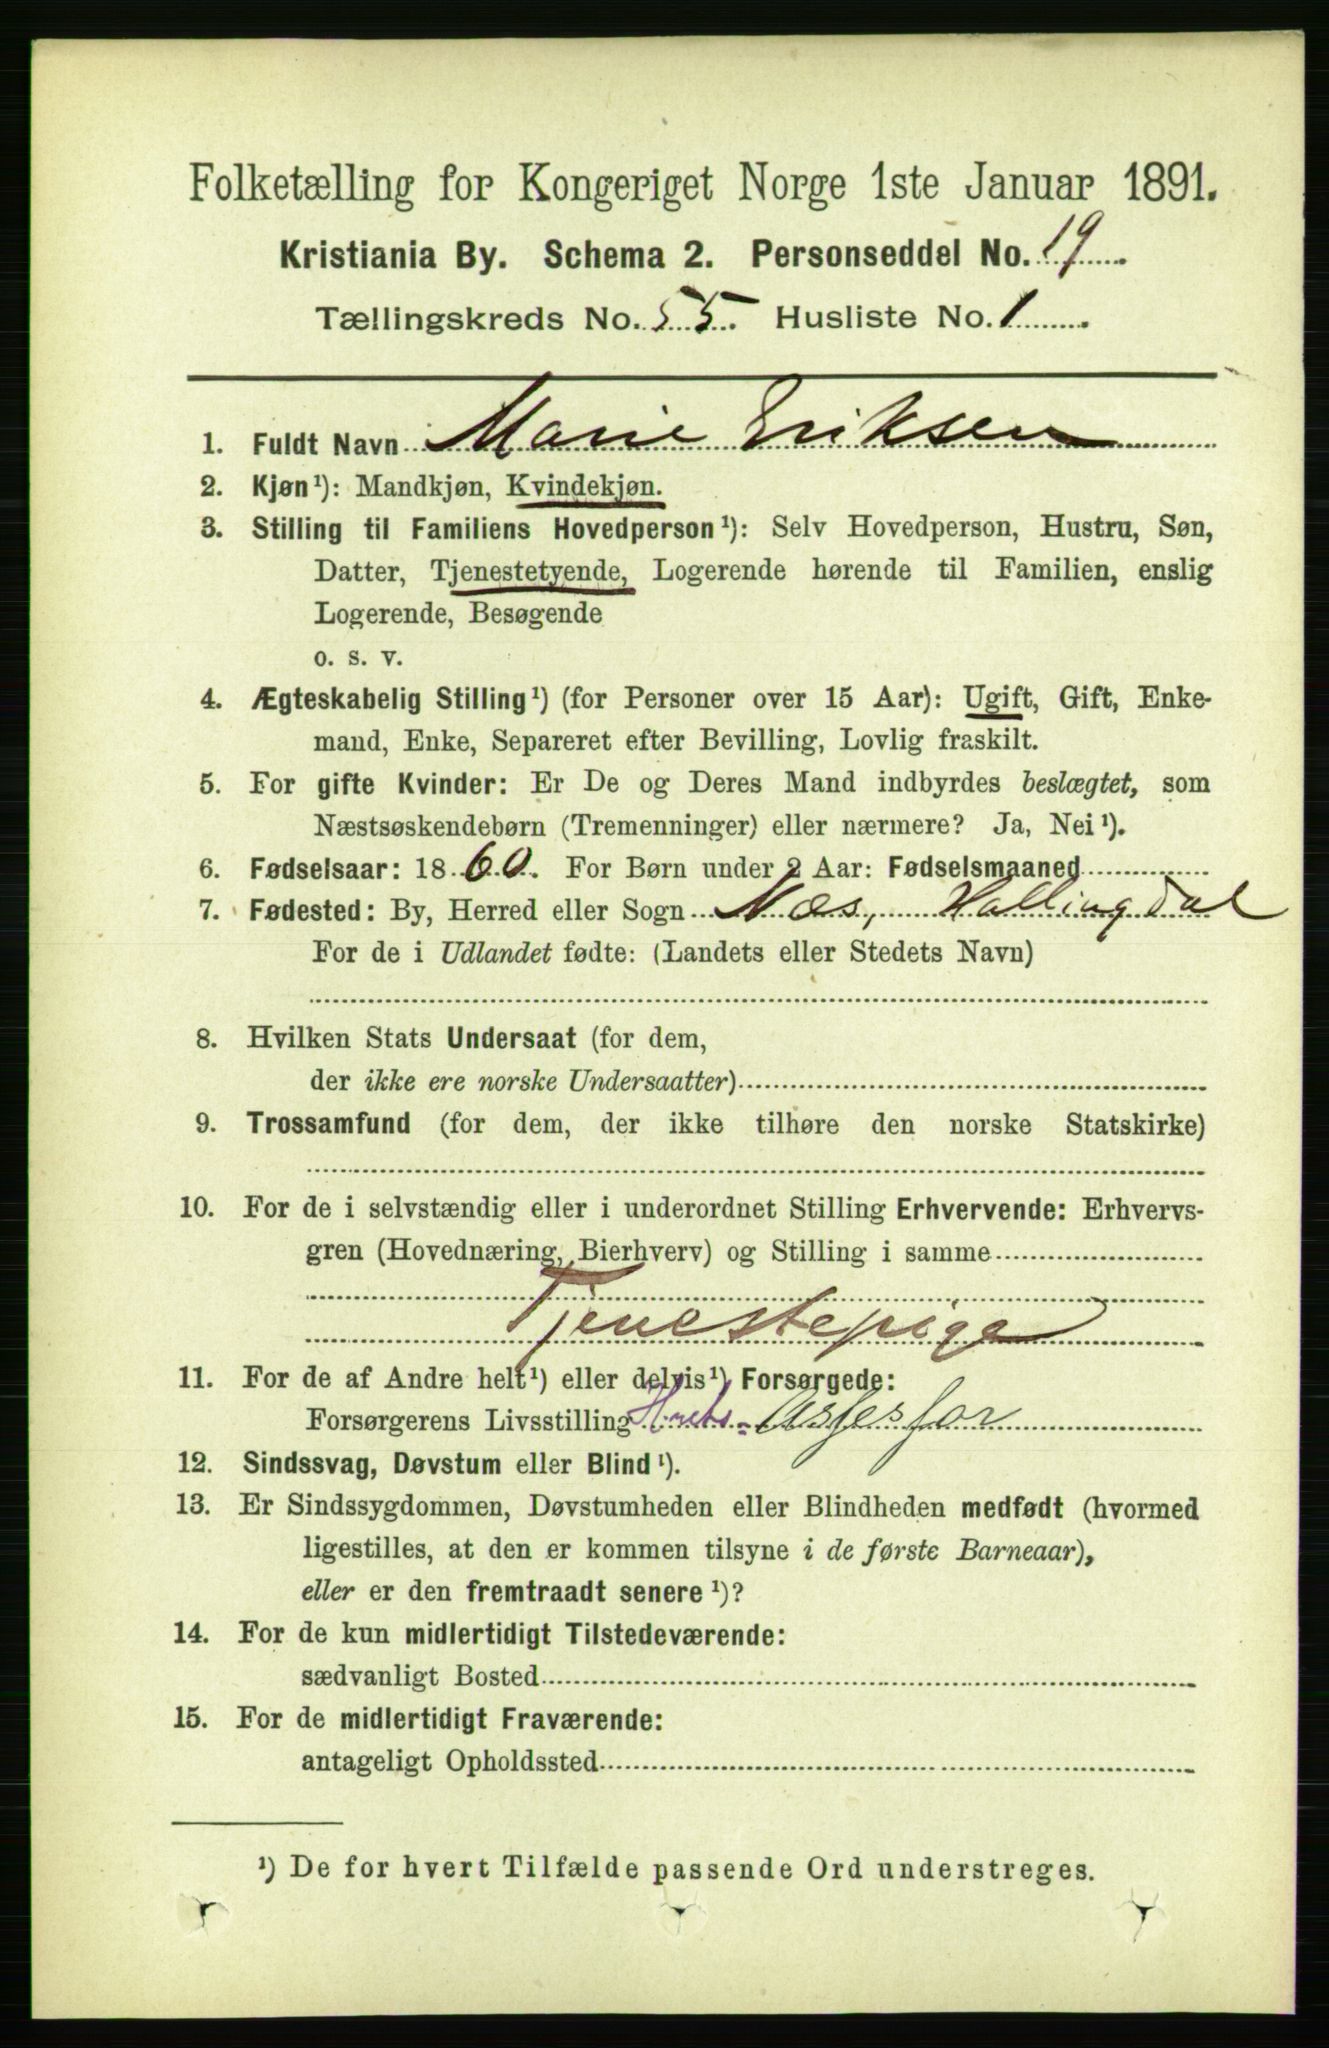 Folketælling for Kongeriget Norge 1ste Januar 1891.
Kristiania By. Schema 2. Personseddel No. 19.
Tællingskreds No. 55. Husliste No. 1.
1. Fuldt Navn Marie Eriksen
2. Kjøn¹): Mandkjøn, Kvindekjøn.
3. Stilling til Familiens Hovedperson¹): Selv Hovedperson, Hustru, Søn,
Datter, Tjenestetyende, Logerende hørende til Familien, enslig
Logerende, Besøgende
o. s. v.
4. Ægteskabelig Stilling¹) (for Personer over 15 Aar): Ugift, Gift, Enke-
mand, Enke, Separeret efter Bevilling, Lovlig fraskilt.
5. For gifte Kvinder: Er De og Deres Mand indbyrdes beslægtet, som
Næstsøskendebørn (Tremenninger) eller nærmere? Ja, Nei¹).
6. Fødselsaar: 1860. For Børn under 2 Aar: Fødselsmaaned
7. Fødested: By, Herred eller Sogn Næs, Hallingdal
For de i Udlandet fødte: (Landets eller Stedets Navn)
8. Hvilken Stats Undersaat (for dem,
der ikke ere norske Undersaatter)
9. Trossamfund (for dem, der ikke tilhøre den norske Statskirke)
10. For de i selvstændig eller i underordnet Stilling Erhvervende: Erhvervs-
gren (Hovednæring, Bierhverv) og Stilling i samme
Tjenestepige
11. For de af Andre helt¹) eller delvis¹) Forsørgede:
Forsørgerens Livsstilling Assessor
12. Sindssvag, Døvstum eller Blind¹).
13. Er Sindssygdommen, Døvstumheden eller Blindheden medfødt (hvormed
ligestilles, at den er kommen tilsyne i de første Barneaar),
eller er den fremtraadt senere¹)?
14. For de kun midlertidigt Tilstedeværende:
sædvanligt Bosted
15. For de midlertidigt Fraværende:
antageligt Opholdssted
¹) De for hvert Tilfælde passende Ord understreges.